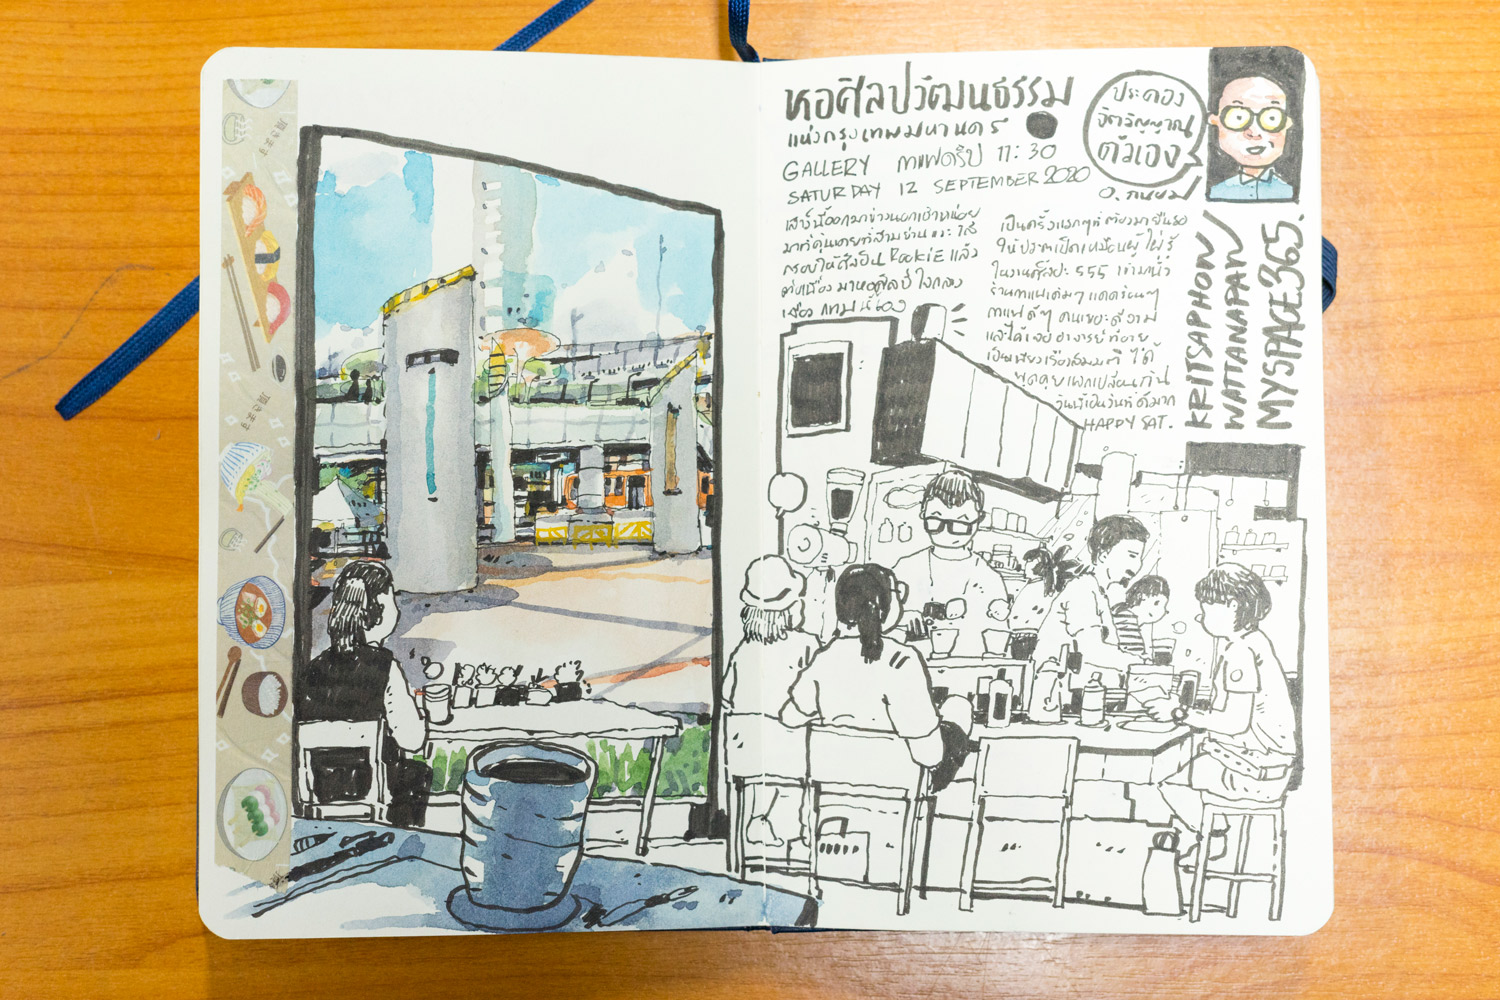 หอศิลปวัฒนธรรม
แห่งกรุงเทพมหานคร
GALLERY กาแฟดริป 11:30
SATURDAY 12 SEPTEMBER 2020
เสาร์นี้ออกมาข้างนอกเช้าหน่อย
มาที่คุ้นเคยที่สามย่าน
ศิลปิน ROOKIE แล้ว
ต่อเนื่องมาหอศิลป์ ใจกลาง
เมือง
เป็นครั้งแรกๆที่ต้องมายืนรอ
ให้ประตูเปิดเหมือนผู้ใฝ่รู้
ในงานศิลปะ 555 เข้ามานั่ง
ร้านกาแฟเดิมๆ แดดร้อนๆ
กาแฟดีๆ คนเยอะดีงาม
และได้เจออาจารย์
ได้
พูดคุยแลกเปลี่ยนกัน
วันนี้เป็นวันที่ดีมาก
HAPPY SAT.
ประคอง
จิตวิญญาณ
ตัวเอง
KRITSAPHON
WATTANAPAN
MYSPACE'365.